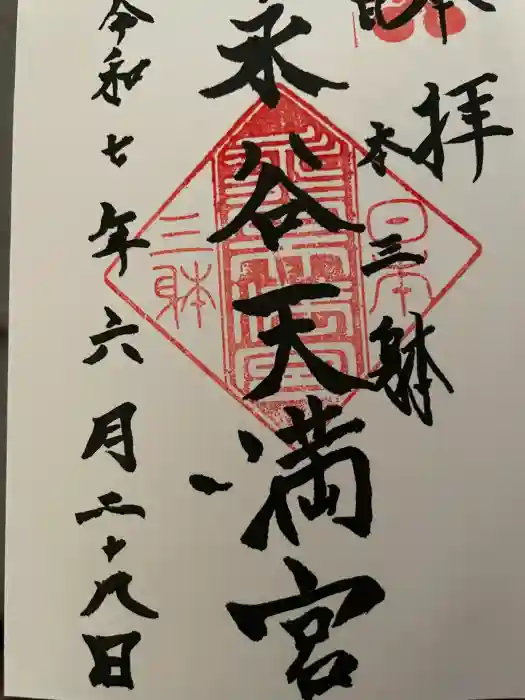 奉拝
日本三躰
永谷天満宮
令和七年六月二十九日
日本
三躰